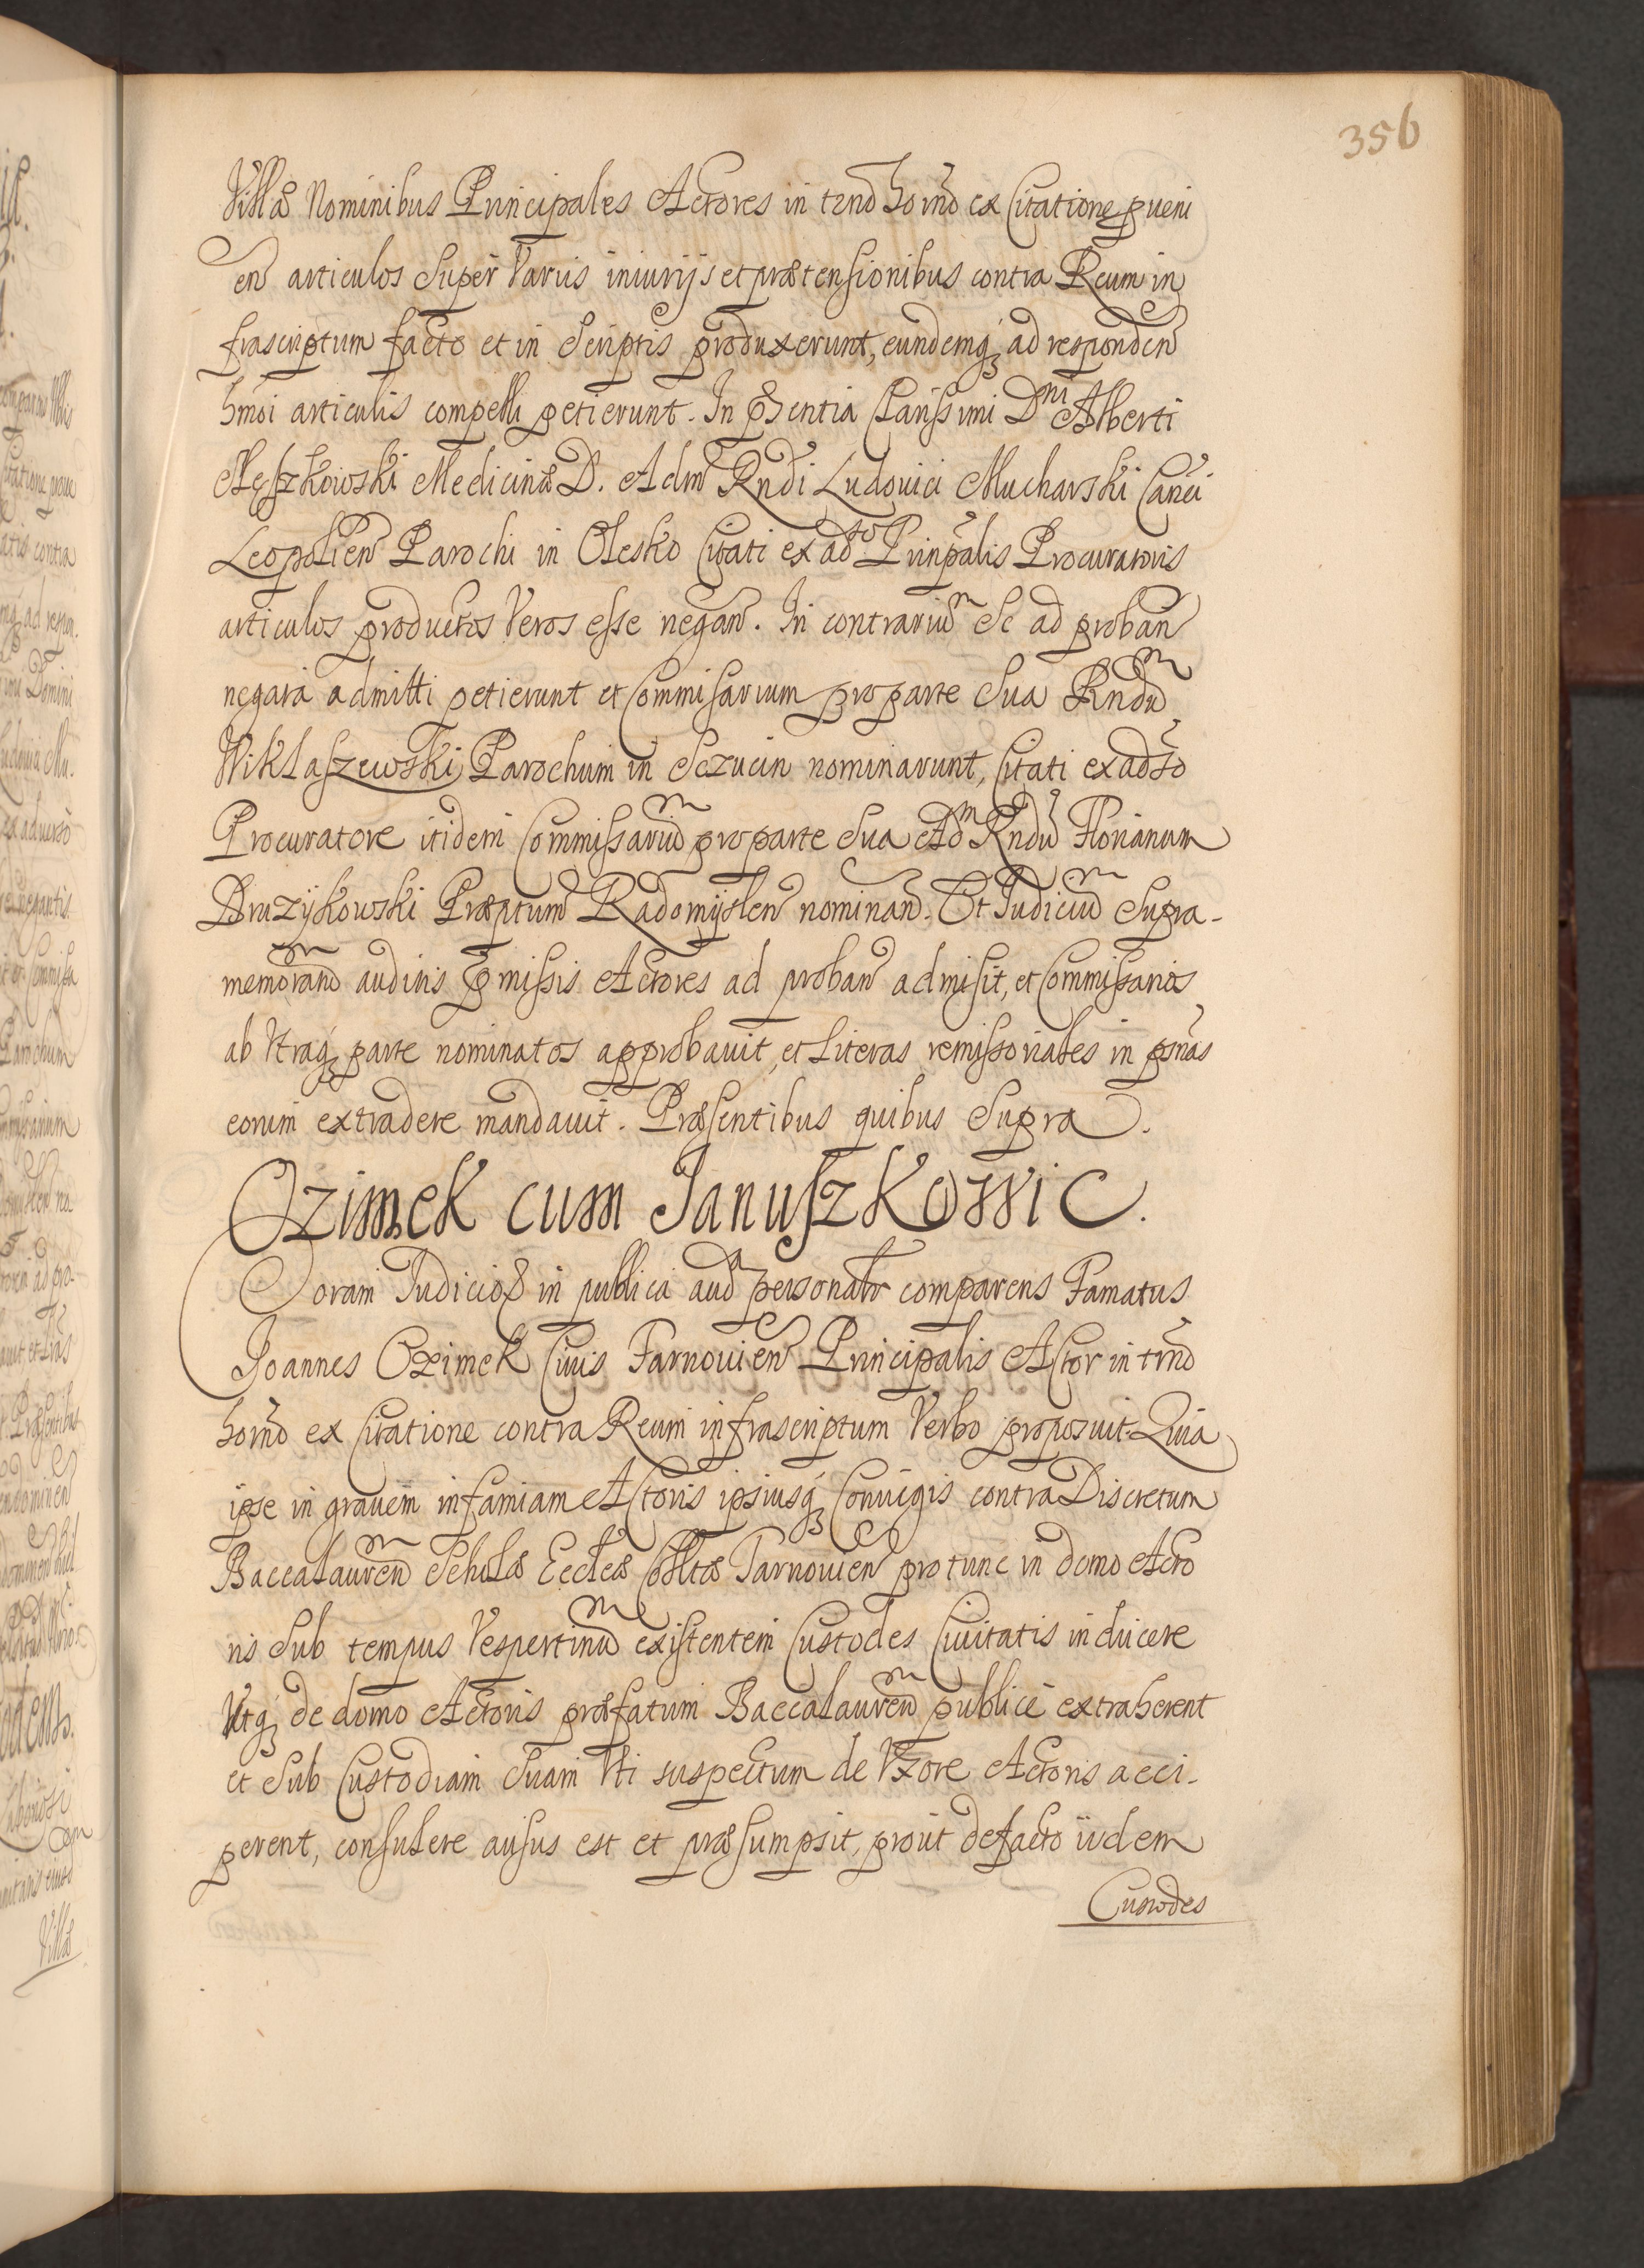 356
Villæ Nominibus Principales Actores in tr̃no hor̃no ex Citatione pueni
eñ articulos Super Varijs iniurijs et prætensionibus contra Reum in
frascriptum facto et in Scriptis produxerunt, eundemq; ad responden̄
hmoi articulis compelli petierunt. In pñsentia Clarissimi Dni Alberti
Oleszkowski Medicinæ D. Adm̃ Rndi Ludovici Mucharski Canci
Leopolień Parochi in Olesko Citati ex adso Prinpalis Procuratoris
articulos productos Veros esse negañ. In contrariũ Se ad probañ
negata admitti petierunt et Commissarium pro parte Sua Rndũ
Wiklaszewski Parochum in Sczucin nominarunt, Citati ex adso
Procuratore itidem Commissariũ pro parte Sua Adm̃ Rndũ Florianum
Druzÿkowski Præptum Radomÿslen̄ nominañ. Et Judiciũ Supra-
memorañ auditis pmissis Actores ad probañ admisit, et Commissarios
ab Vtraq; parte nominatos approbauit, et Literas remissoriales in psnas
eorum extradere mandauit. Præsentibus quibus Supra.
Ozimek cum Januszkowic.
Coram Judicio &c in publica aud̃ personalr comparens Famatus
Joannes Ozimek Ciuis Tarnouien̄ Principalis Actor in tr̃no
hor̃no ex Citatione contra Reum infrascriptum Verbo proposuit. Quia
ipse in grauem infamiam Actoris ipsiusq; Coniugis contra Discretum
Baccalaureũ Scholæ Eccleæ Colltæ Tarnouien̄ pro tunc in domo Acto
ris Sub tempus Vespertinũ existentem Custodes Ciuitatis inducere
Vtq; de domo Actoris præfatum Baccalaureũ publicè extraherent
et Sub Custodiam Suam Vti suspectum de Vxore Actoris acci-
perent, consulere ausus est et præsumpsit, prout de facto ijdem
Custodes